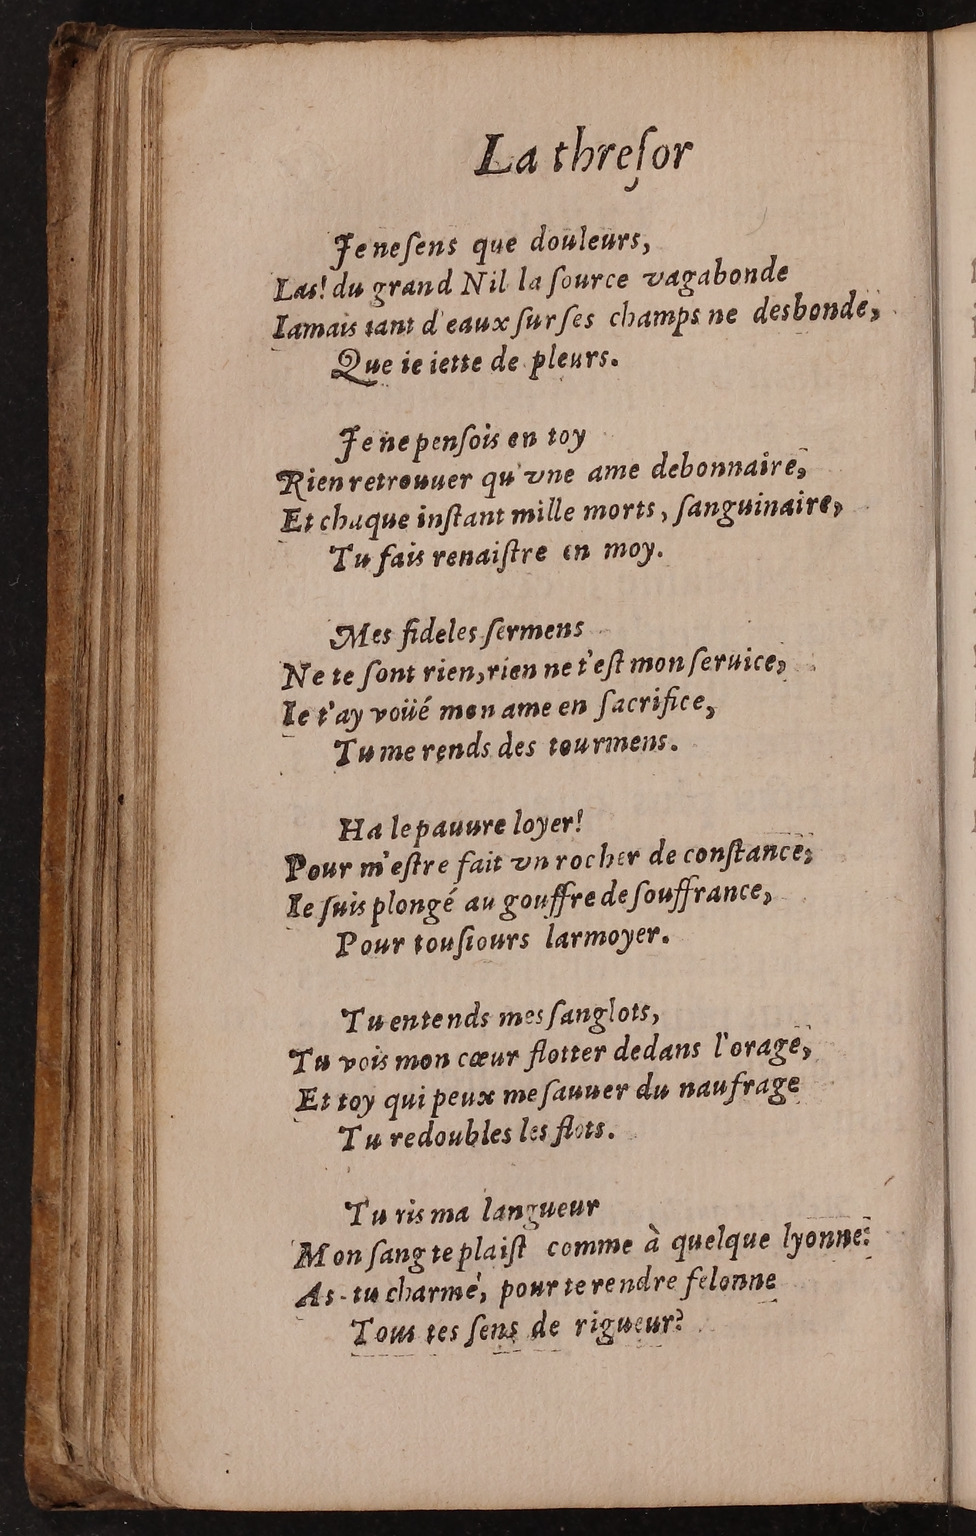 La threſor
Je ne ſens que douleurs,
Las! du grand Nil la ſource vagabonde
Iamais tant d'eaux ſur ſes champs ne desbonde,
Que ie iette de pleurs.
Je ne penſois en toy
Rien retrouuer qu'vne ame debonnaire,
Et chaque inſtant mille morts, ſanguinaire,
Tu fais renaiſtre en moy.
Mes fideles ſermens
Ne te ſont rien, rien ne t'eſt mon ſeruice,
Ie t'ay voüé mon ame en ſacrifice,
Tu me rends des tourmens.
Ha le pauure loyer!
Pour m'eſtre fait vn rocher de conſtance,
Ie ſuis plongé au gouffre de ſouffrance,
Pour touſiours larmoyer.
Tu entends mes ſanglots,
Tu vois mon cœur flotter dedans l'orage,
Et toy qui peux me ſauuer du naufrage
Tu redoubles les flots.
Tu ris ma langueur
Mon ſang te plaiſt comme à quelque lyonne:
As-tu charmé, pour te rendre felonne
Tous tes ſens de rigueur?